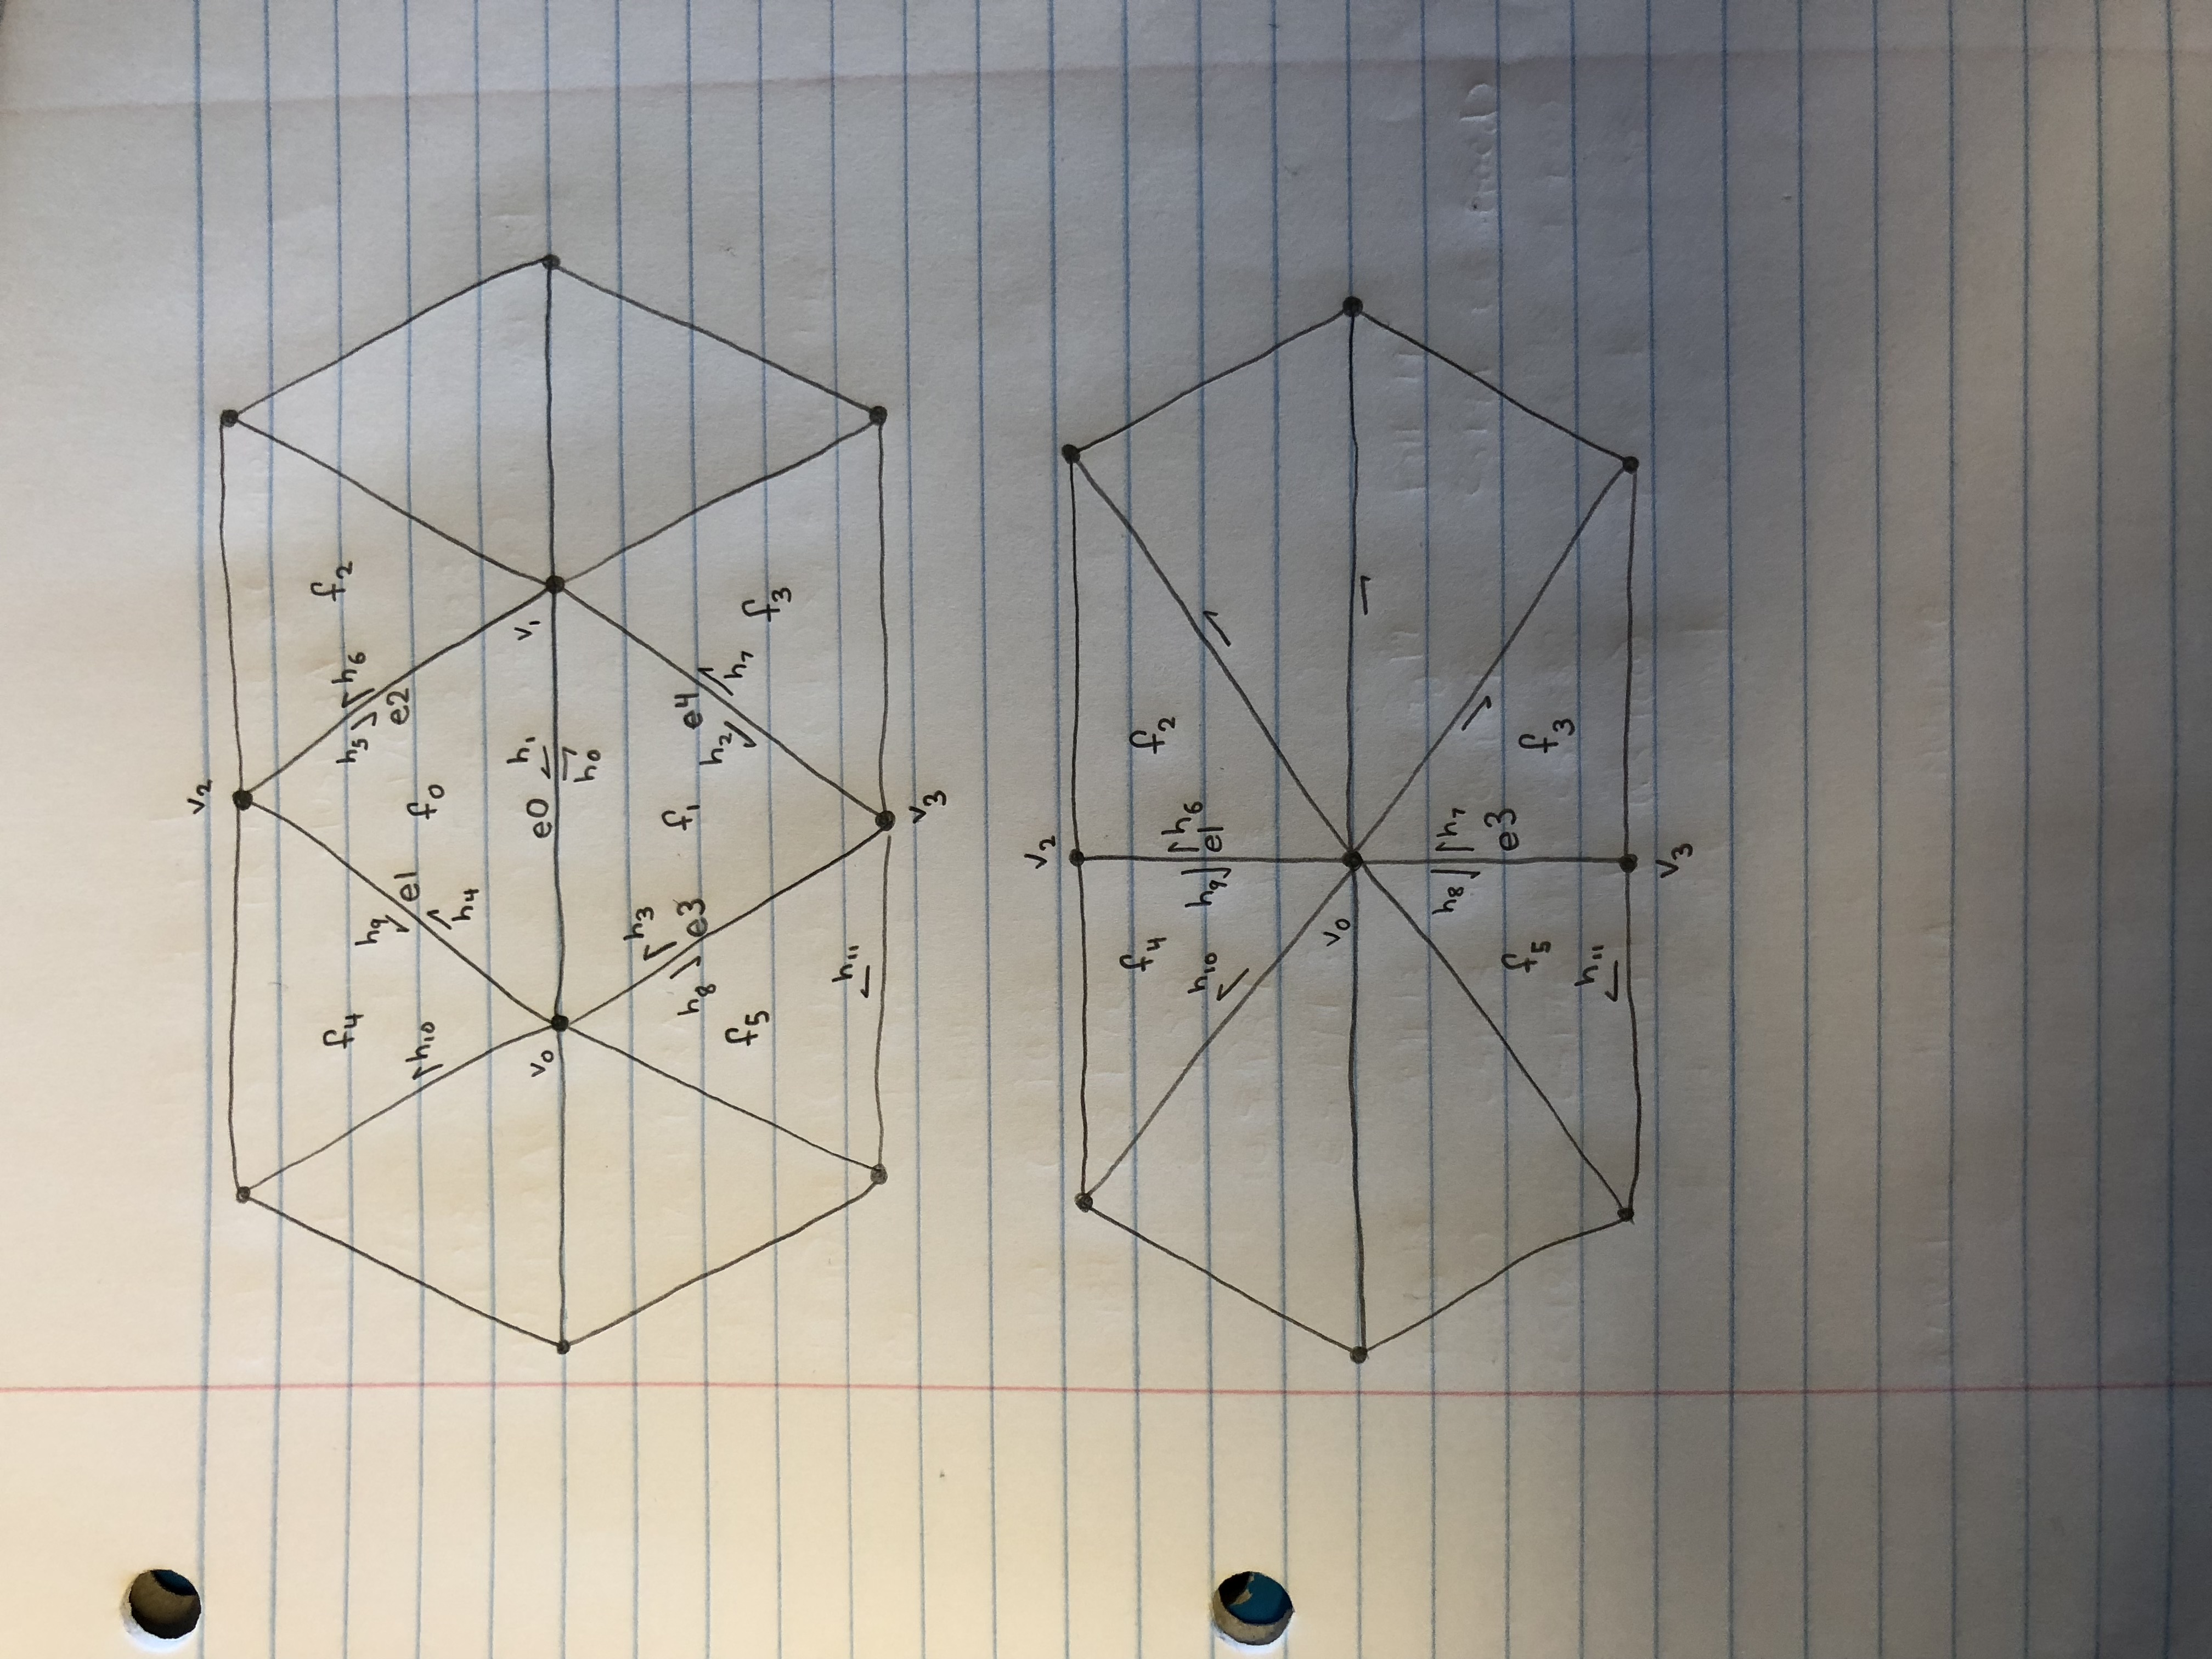 v2
f4 h9 e1 h5 h6 e2 f2
h10 f0
h4
v0 e0 h1 v1
h0
h3
h8 e3 f1 e4
h2 h7
f5 f3
h11
v3
v2
f4 f2
h10 h9 h6
e1
v0
h8 h7
e3
f5 f3
h11
v3